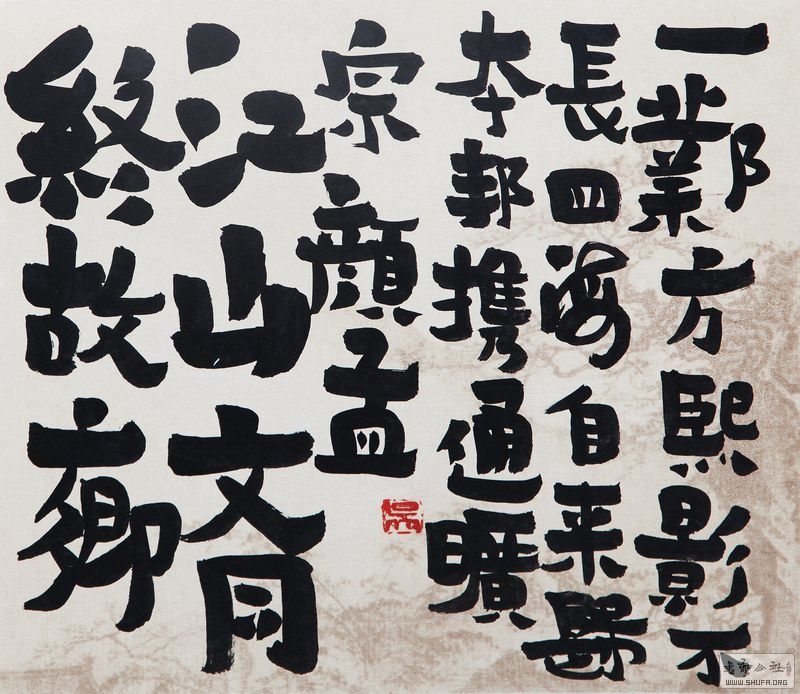 一鄴方熙影不
長四海自来
夲邦携通曠
宗顔孟
江山
終故鄉
書法公社
WWW.SHUFA.ORG